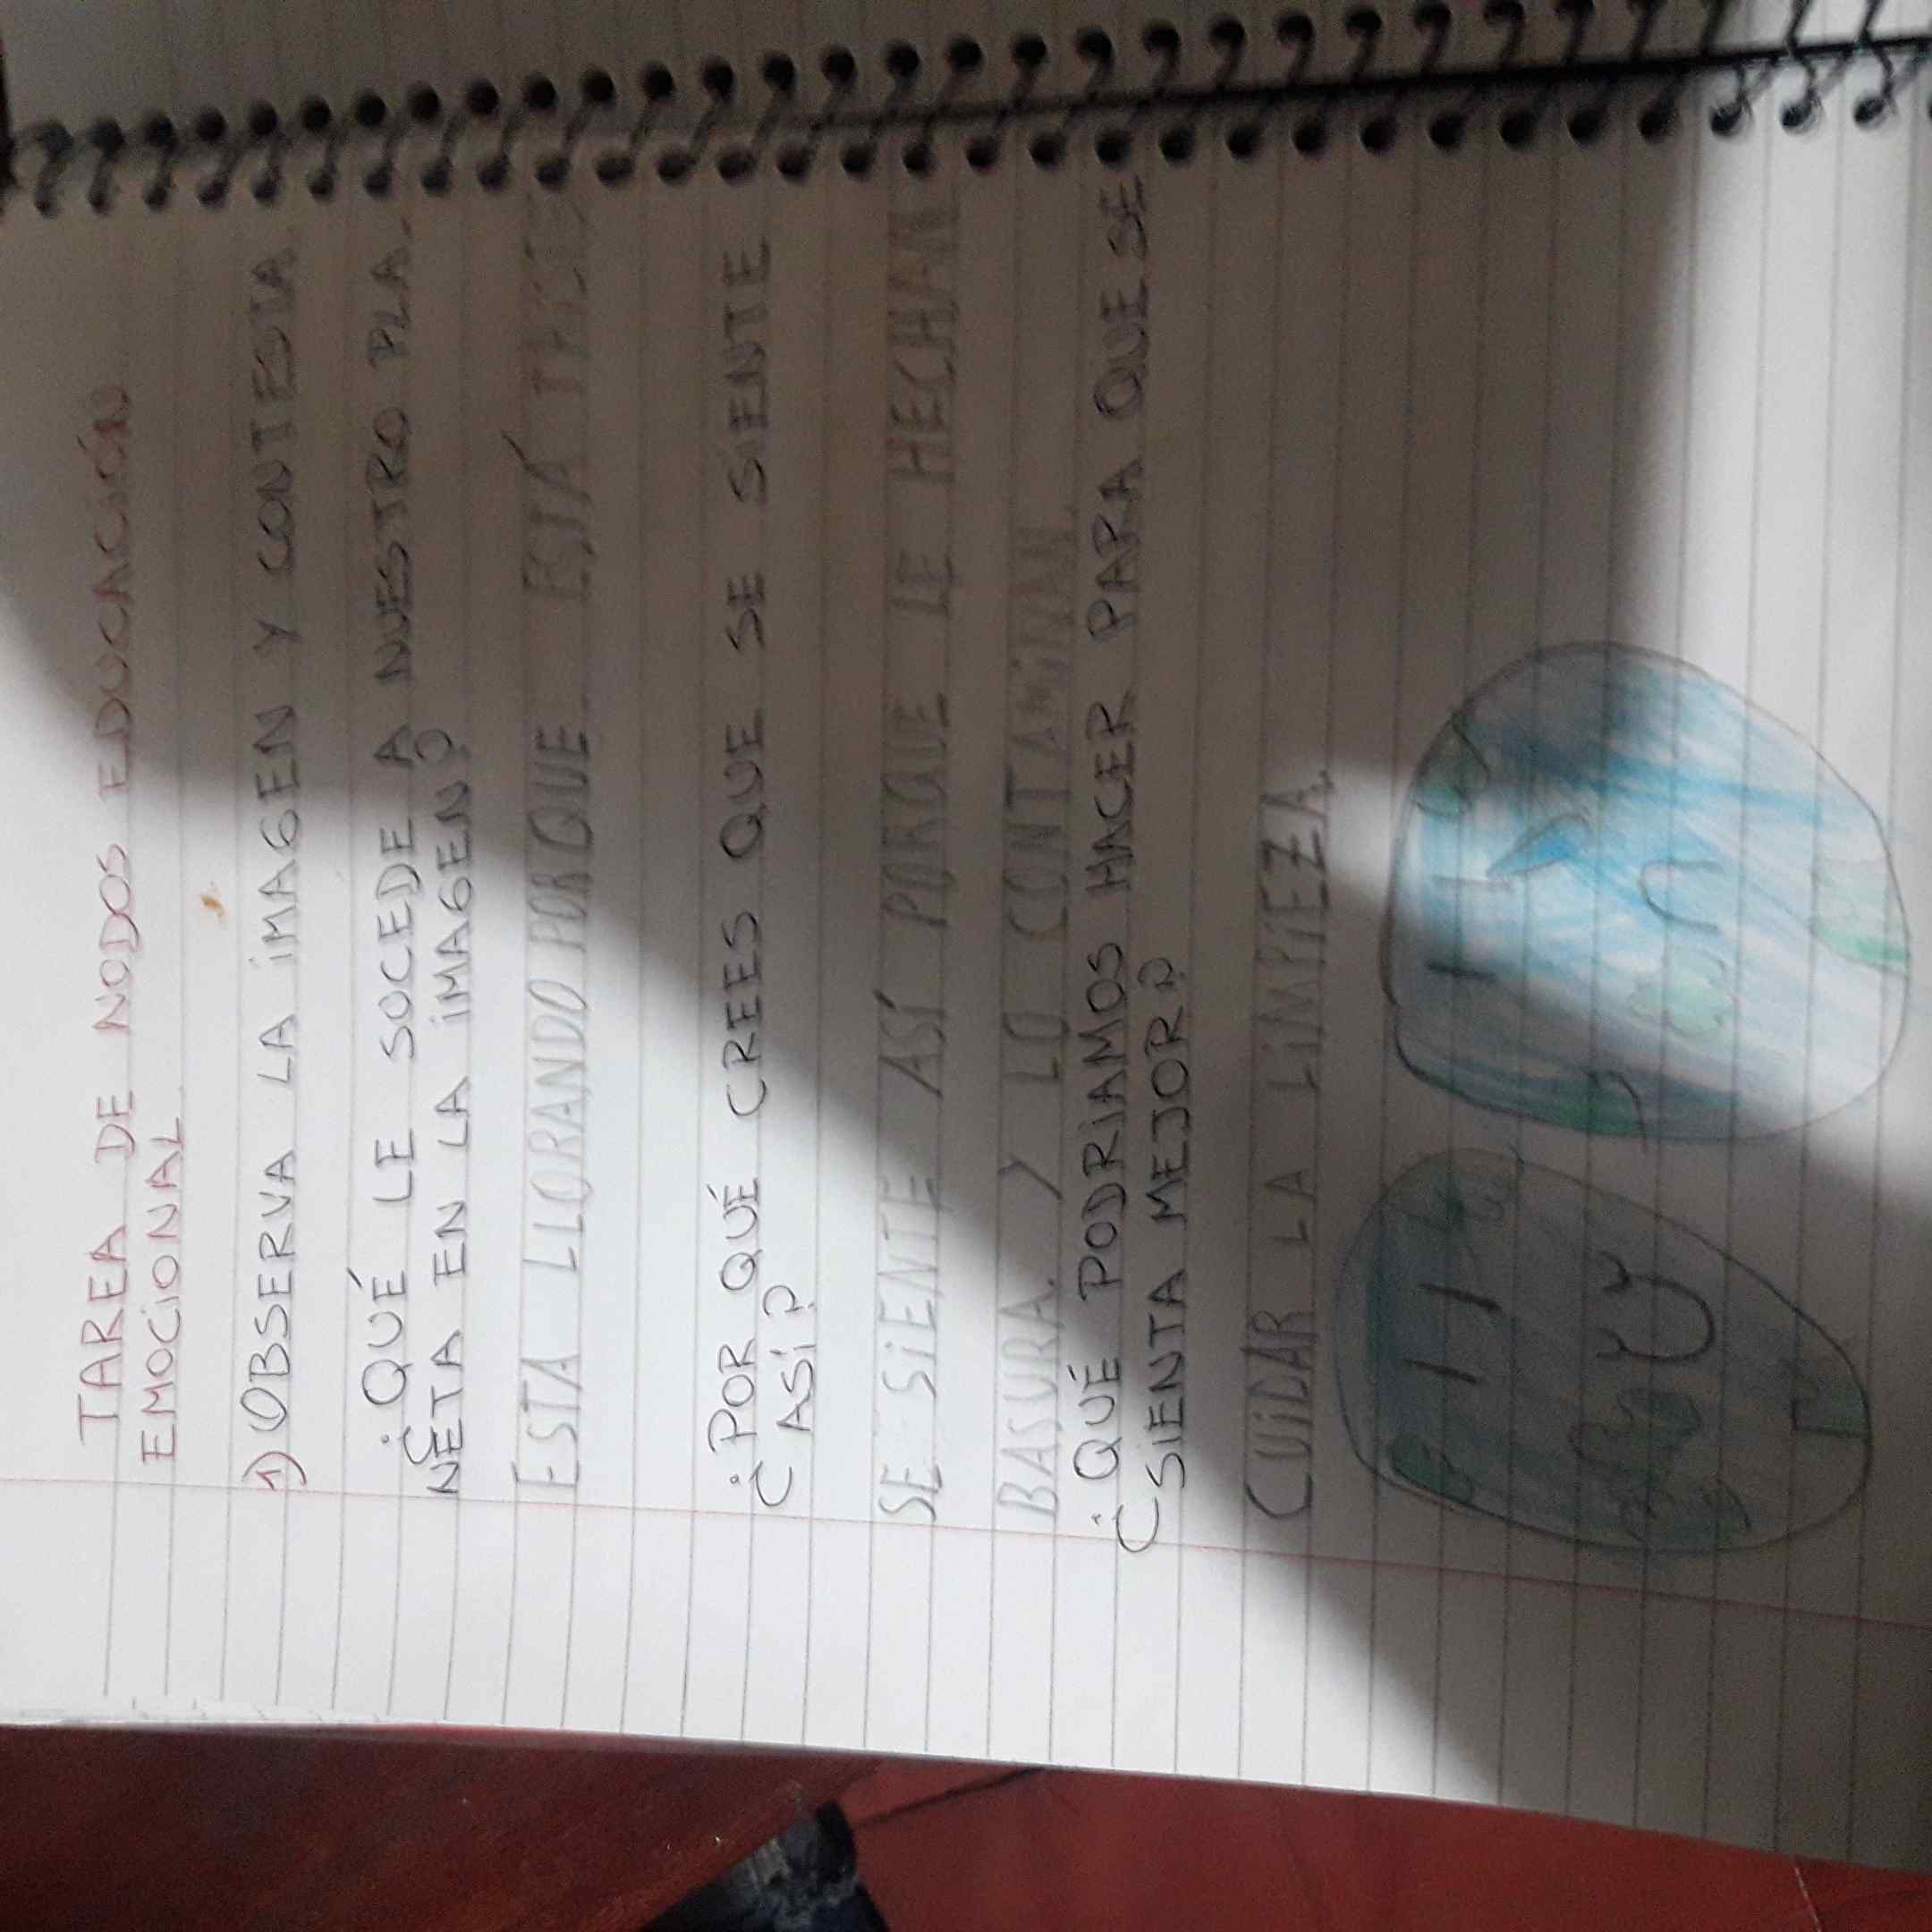 TAREA DE NODOS EDUCACIÓN
EMOCIONAL.
1) OBSERVA LA IMAGEN Y CONTESTA
¿QUÉ LE SOCEDE A NUESTRO PLA-
NETA EN LA IMAGEN?
ESTA LLORANDO PORQUE ESTÁ TRISTE
¿POR QUÉ CREES QUE SE SIENTE
ASÍ?
SE SIENTE ASÍ PORQUE LE HECHAN
BASURA Y LO CONTAMINAN
¿QUÉ PODRIAMOS HACER PARA QUE SE
SIENTA MEJOR?
CUIDAR LA LIMPIEZA.